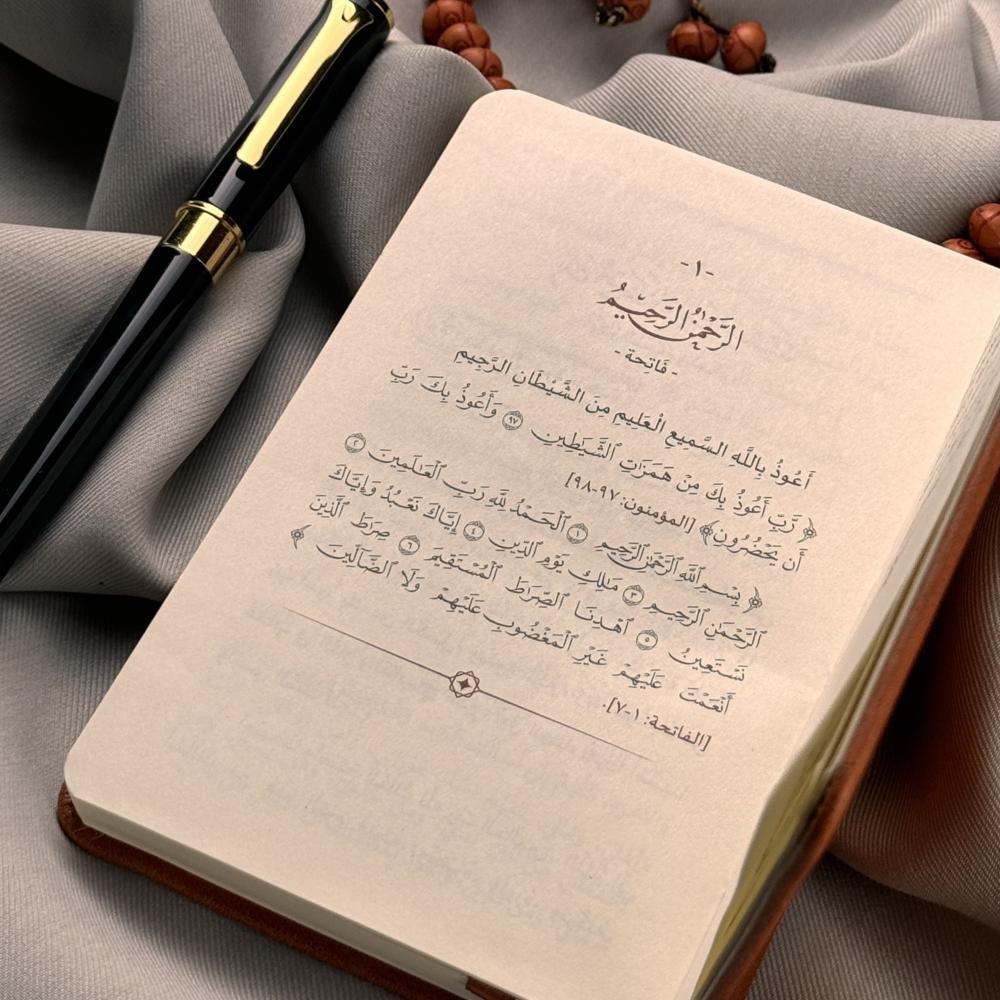 -١-
الرَّحْمٰنُ الرَّحِيمُ
- فَاتِحة -
أَعُوذُ بِاللَّهِ السَّمِيعِ الْعَلِيمِ مِنَ الشَّيْطَانِ الرَّجِيمِ
﴿ رَّبِّ أَعُوذُ بِكَ مِنْ هَمَزَٰتِ ٱلشَّيَٰطِينِ ٩٧ وَأَعُوذُ بِكَ رَبِّ
أَن يَحْضُرُونِ﴾ [المؤمنون: ٩٧-٩٨]
﴿ بِسْمِ ٱللَّهِ ٱلرَّحْمَٰنِ ٱلرَّحِيمِ ١ ٱلْحَمْدُ لِلَّهِ رَبِّ ٱلْعَٰلَمِينَ ٢
ٱلرَّحْمَٰنِ ٱلرَّحِيمِ ٣ مَٰلِكِ يَوْمِ ٱلدِّينِ ٤ إِيَّاكَ نَعْبُدُ وَإِيَّاكَ
نَسْتَعِينُ ٥ ٱهْدِنَا ٱلصِّرَٰطَ ٱلْمُسْتَقِيمَ ٦ صِرَٰطَ ٱلَّذِينَ
أَنْعَمْتَ عَلَيْهِمْ غَيْرِ ٱلْمَغْضُوبِ عَلَيْهِمْ وَلَا ٱلضَّآلِّينَ ﴾
[الفاتحة: ١-٧].